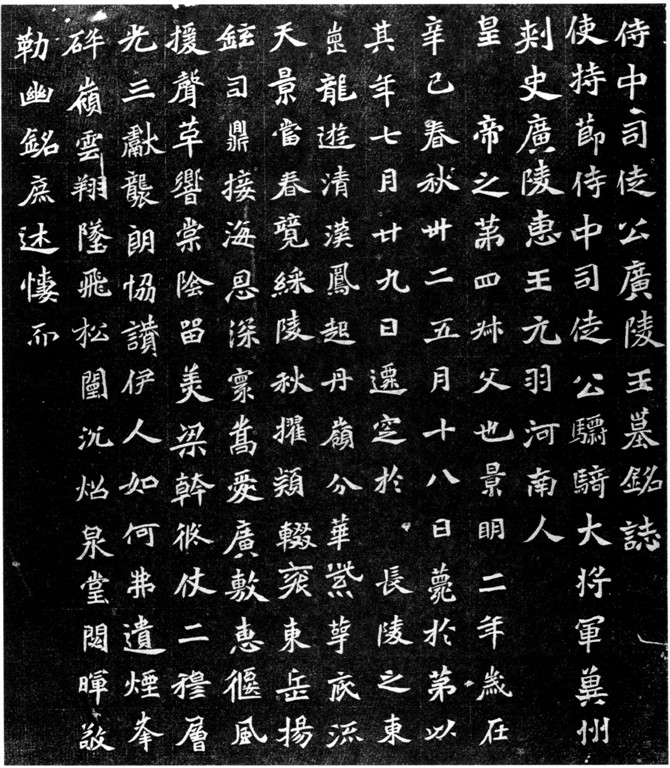 侍中司徒公廣陵王墓銘誌
使持節侍中司徒公驃騎大將軍冀州
刾史廣陵惠王元羽河南人
皇帝之第四叔父也景明二年歲在
辛巳春秋卅二五月十八日薨於第以
其年七月廿九日遷窆於長陵之東
崗龍遊清漢鳳起丹嶺分華紫萼底流
天景當春競綵陵秋擢穎輟袞東岳揚
鉉司鼎接海恩深寰嵩愛廣敷惠偃風
援聲草響棠陰留美梁幹攸仗二穆層
光三獻襲朗協讚伊人如何弗遺煙峯
碎嶺雲翔墜飛松閨沉炤泉堂閟暉敬
勒幽銘庶述悽而